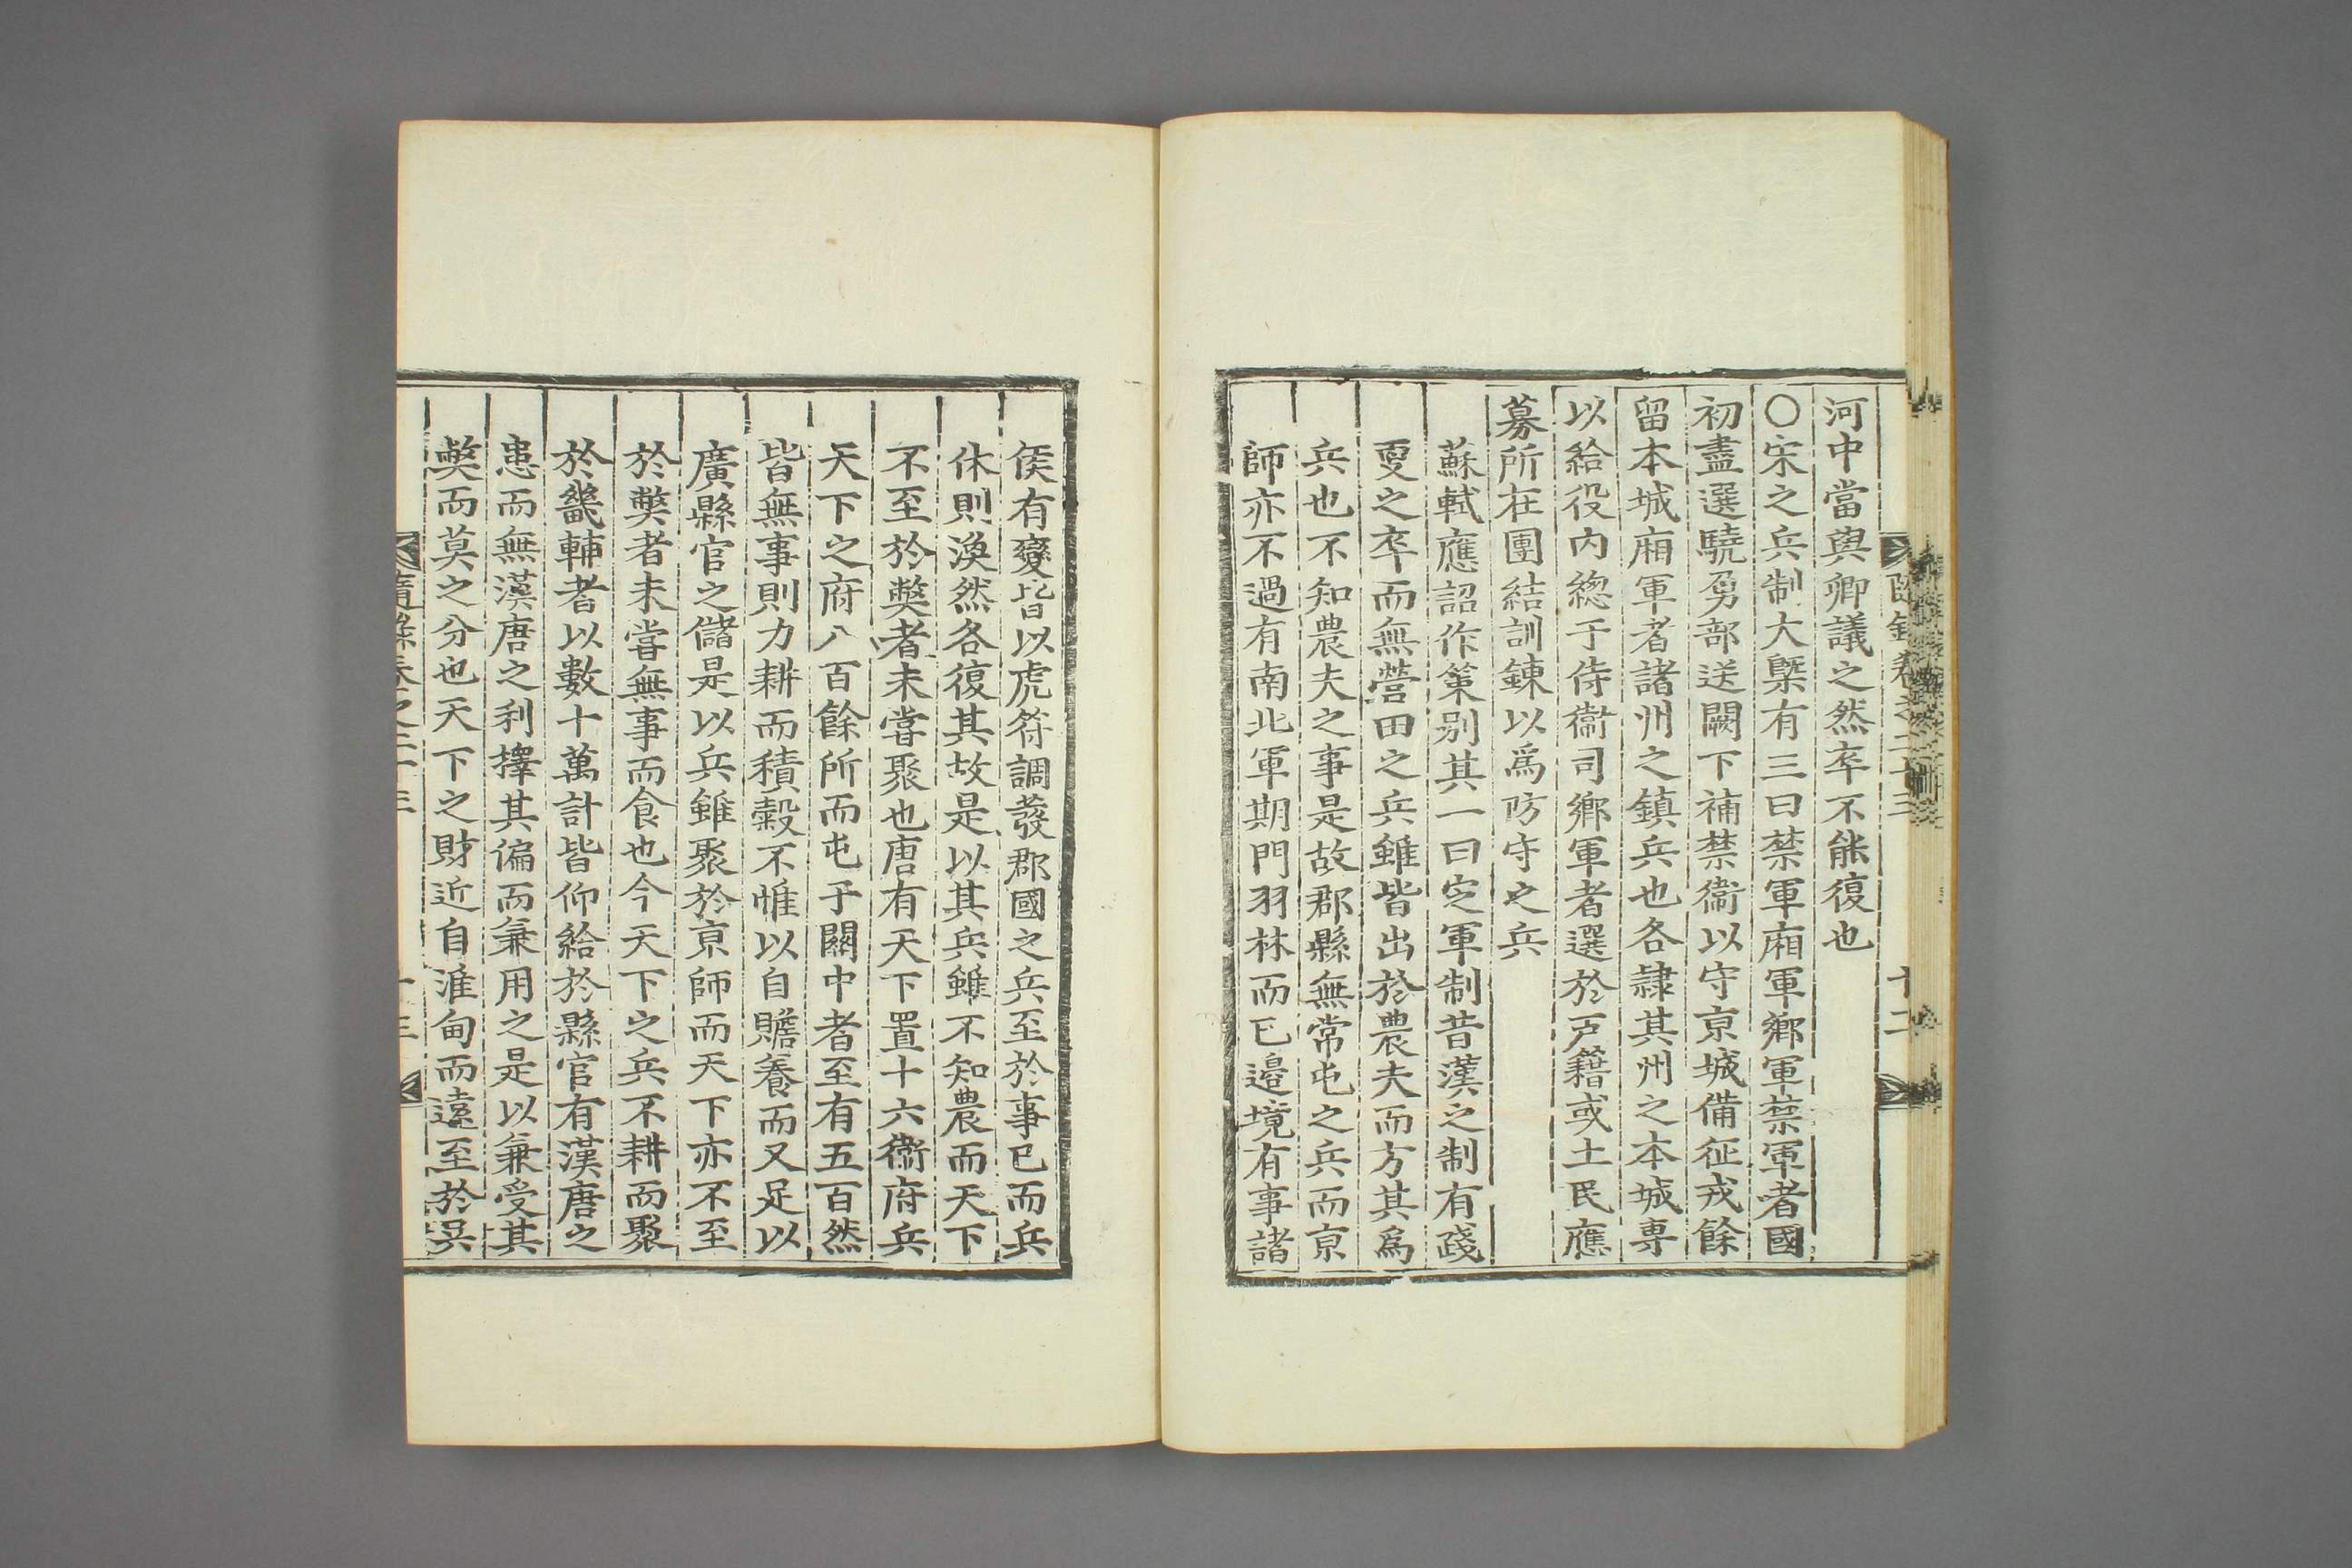 河中當與卿議之然卒不能復也
○宋之兵制大槩有三曰禁軍廂軍鄕軍禁軍者國
初盡選驍勇部送闕下補禁衞以守京城備征戎餘
留本城廂軍者諸州之鎮兵也各隷其州之本城専
以給役内緫于侍衞司鄕軍者選於戸籍或土民應
募所在團結訓鍊以爲防守之兵
蘇軾應詔作策别其一曰定軍制昔漢之制有踐
更之卒而無營田之兵雖皆出於農夫而方其爲
兵也不知農夫之事是故郡縣無常屯之兵而京
師亦不過有南北軍期門羽林而已邉境有事諸
侯有變皆以虎符調發郡國之兵至於事已而兵
休則渙然各復其故是以其兵雖不知農而天下
不至於獘者未嘗聚也唐有天下置十六衞府兵
天下之府八百餘所而屯于關中者至有五百然
皆無事則力耕而積糓不惟以自贍養而又足以
廣縣官之儲是以兵雖聚於京師而天下亦不至
於獘者未嘗無事而食也今天下之兵不耕而聚
於畿輔者以數十萬計皆仰給於縣官有漢唐之
患而無漢唐之利擇其偏而兼用之是以兼受其
獘而莫之分也天下之財近自淮甸而遠至於吳